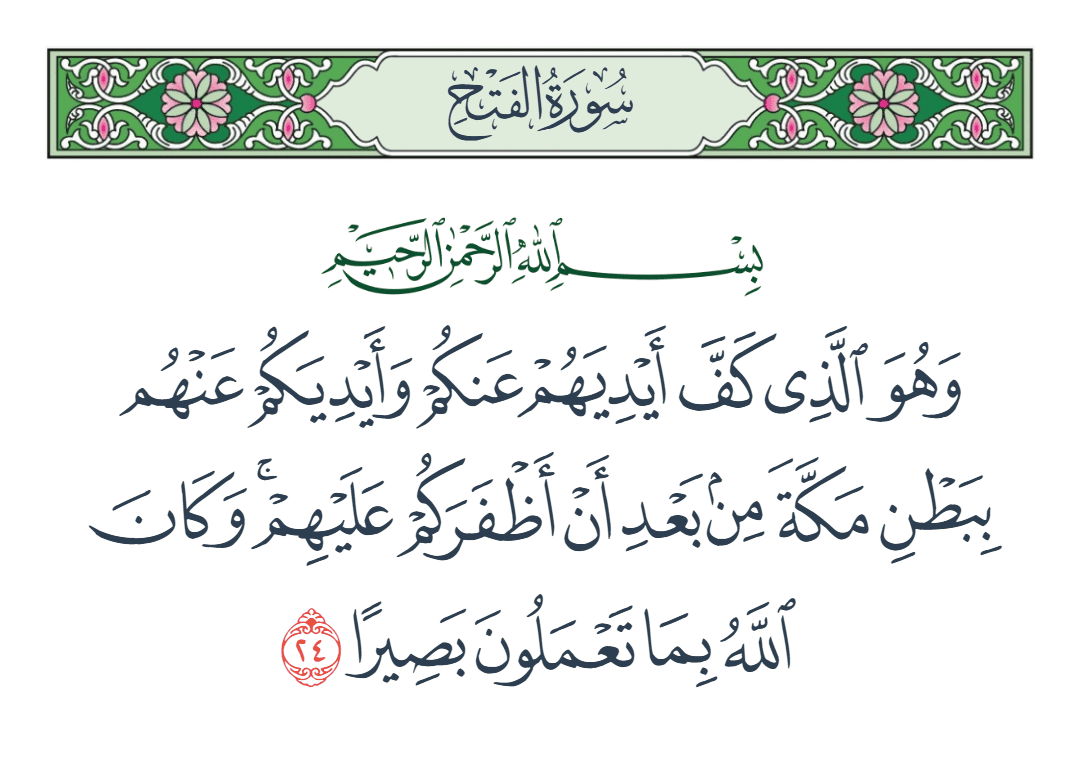 سُورَةُ الفَتْحِ
بِسْمِ ٱللَّهِ ٱلرَّحْمَٰنِ ٱلرَّحِيمِ
وَهُوَ ٱلَّذِى كَفَّ أَيْدِيَهُمْ عَنكُمْ وَأَيْدِيَكُمْ عَنْهُم
بِبَطْنِ مَكَّةَ مِنۢ بَعْدِ أَنْ أَظْفَرَكُمْ عَلَيْهِمْ ۚ وَكَانَ
ٱللَّهُ بِمَا تَعْمَلُونَ بَصِيرًا ٢٤